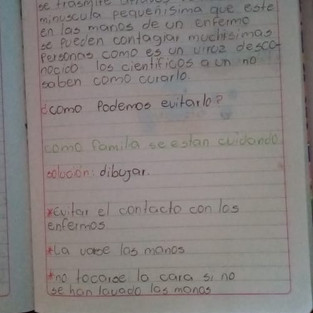 se trasmite
minuscula pequeñisima que este
en las manos de un enfermo
se pueden contagiar muchisimas
Personas como es un viroz desco-
nocido los cientificos aun no
saben como curarlo.
¿como Podemos evitarlo?
como familia se estan cuidando
solucion: dibujar.
*Evitar el contacto con los
enfermos
*La varse las manos
*no tocarse la cara si no
se han lavado las manos